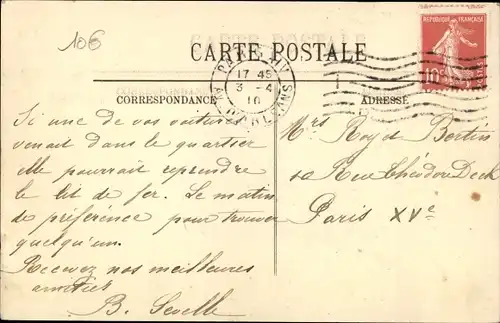 106
CARTE POSTALE
REPUBLIQUE FRANÇAISE
10c
17 45
3 - 4
10
CORRESPONDANCE
ADRESSE
Si une de vos voitures
venait dans le quartier
elle pourrait reprendre
le lit de fer. Le matin
de préférence pour trouver
quelqu'un.
Recevez nos meilleures
amitiés
B. Seville
Mrs Roy et Bertin
10 Rue Théodore Deck
Paris XVe